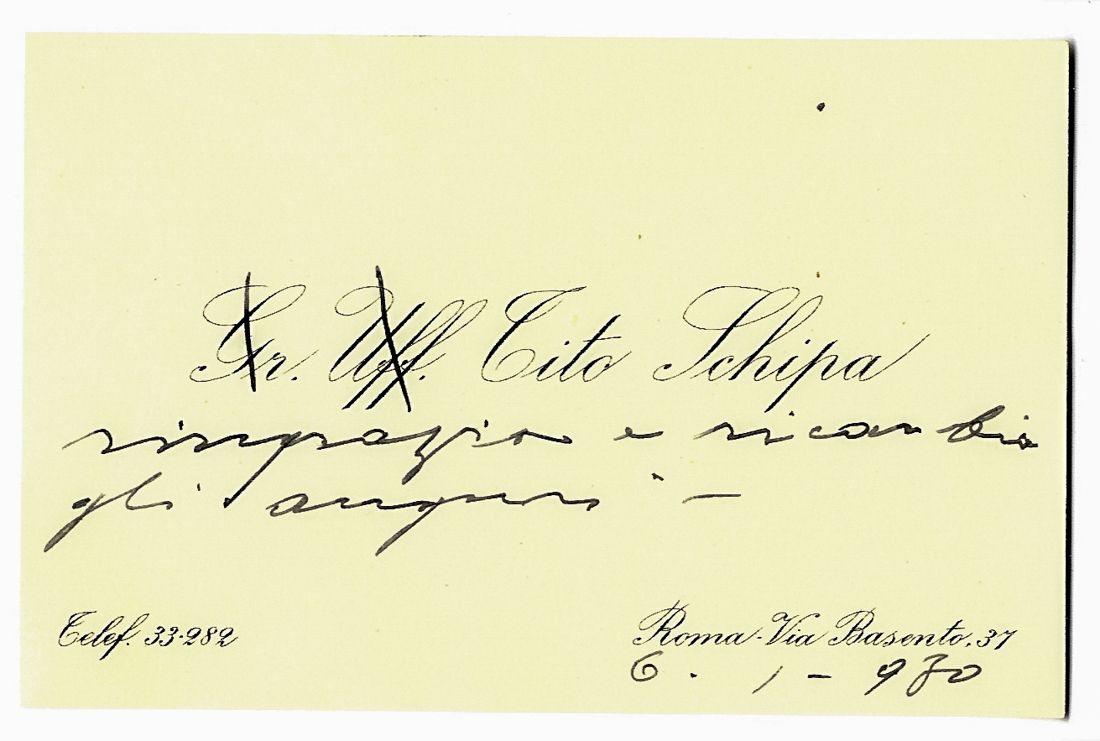 Gr. Uff. Tito Schipa
ringrazio e ricambio
gli auguri –
Telef. 33-282
Roma - Via Basento, 37
6. 1 - 930